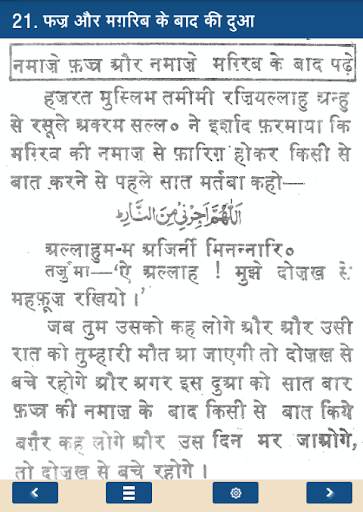 21. फज्र और मग़रिब के बाद की दुआ
नमाज़े फ़ज्र और नमाज़े मग़रिब के बाद पढ़े
हज़रत मुस्लिम तमीमी रज़ियल्लाहु अन्हु
से रसूले अकरम सल्ल० ने इर्शाद फ़रमाया कि
मग़रिब की नमाज़ से फ़ारिग़ होकर किसी से
बात करने से पहले सात मर्तबा कहो—
اَللّٰهُمَّ اَجِرْنِيْ مِنَ النَّارِ
अल्लाहुम-म अजिर्नी मिनन्नारि०
तर्जुमा—'ऐ अल्लाह ! मुझे दोज़ख से
महफ़ूज़ रखियो ।'
जब तुम उसको कह लोगे और और उसी
रात को तुम्हारी मौत आ जाएगी तो दोज़ख से
बचे रहोगे और अगर इस दुआ को सात बार
फ़ज्र की नमाज़ के बाद किसी से बात किये
बग़ैर कह लोगे और उस दिन मर जाओगे,
तो दोज़ख से बचे रहोगे ।